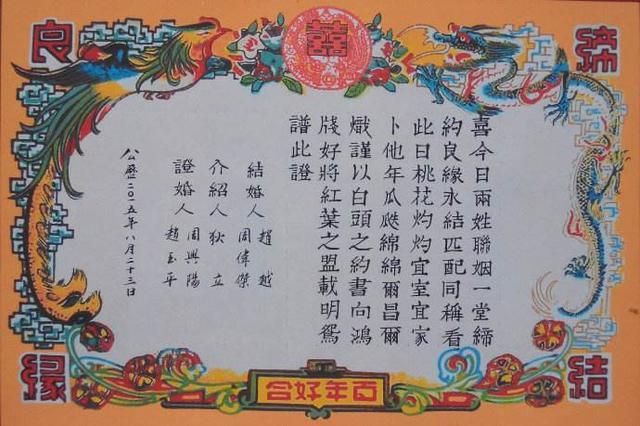 囍
締
結
良
緣
喜今日兩姓聯姻一堂締
約良緣永結匹配同稱看
此日桃花灼灼宜室宜家
卜他年瓜瓞綿綿爾昌爾
熾謹以白頭之約書向鴻
牋好將紅葉之盟載明鴛
譜此證
結婚人 趙越
周偉傑
介紹人 狄立
證婚人 周興陽
趙玉平
公歷二〇一五年八月二十三日
百年好合